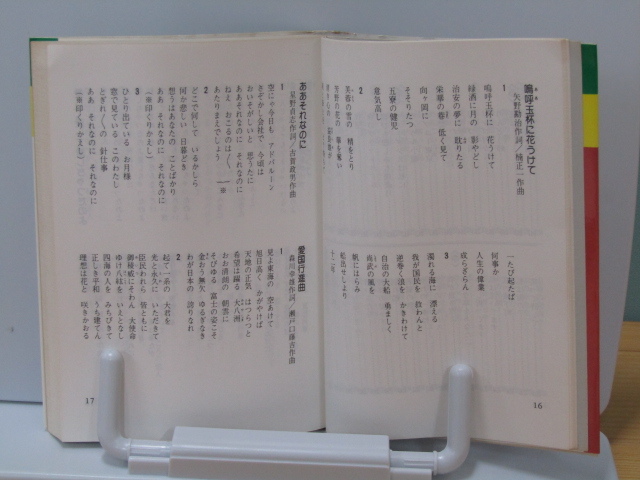 嗚呼玉杯に花うけて
矢野勘治作詞／楠正一作曲
1
嗚呼玉杯に 花うけて
緑酒に月の 影やどし
治安の夢に 耽りたる
栄華の巷 低く見て
向ケ岡に
そそりたつ
五寮の健児
意気高し
2
芙蓉の雪の 精をとり
芳野の花の 華を奪い
一たび起たば
何事か
人生の偉業
成らざらん
3
濁れる海に 漂える
我が国民を 救わんと
逆巻く浪を かきわけて
自治の大船 勇ましく
尚武の風を
帆にはらみ
船出せしより
十二年
16
ああそれなのに
星野貞志作詞／古賀政男作曲
1
空にゃ今日も アドバルーン
さぞかし会社で 今頃は
おいそがしいと 思うたに
ああそれなのに それなのに
ねえ おこるのは／＼
あたりまえでしょう ※
2
どこで何して いるかしら
何か悲しい 日暮どき
想うはあなたの ことばかり
ああ それなのに それなのに
（※印くりかえし）
3
ひとり出ている お月様
窓で見ている このわたし
とぎれ／＼の 針仕事
ああ それなのに それなのに
（※印くりかえし）
愛国行進曲
森川幸雄作詞／瀬戸口藤吉作曲
1
見よ東海の 空あけて
旭日高く かがやけば
天地の正気 はつらつと
希望は踊る 大八洲
おお清朗の 朝雲に
そびゆる 富士の姿こそ
金おう無欠 ゆるぎなき
わが日本の 誇りなれ
2
起て一系の 大君を
光と永久に いただきて
臣民われら 皆ともに
御稜威にそわん 大使命
ゆけ八紘を いえとなし
四海の人を みちびきて
正しき平和 うち建てん
理想は花と 咲きかおる
17